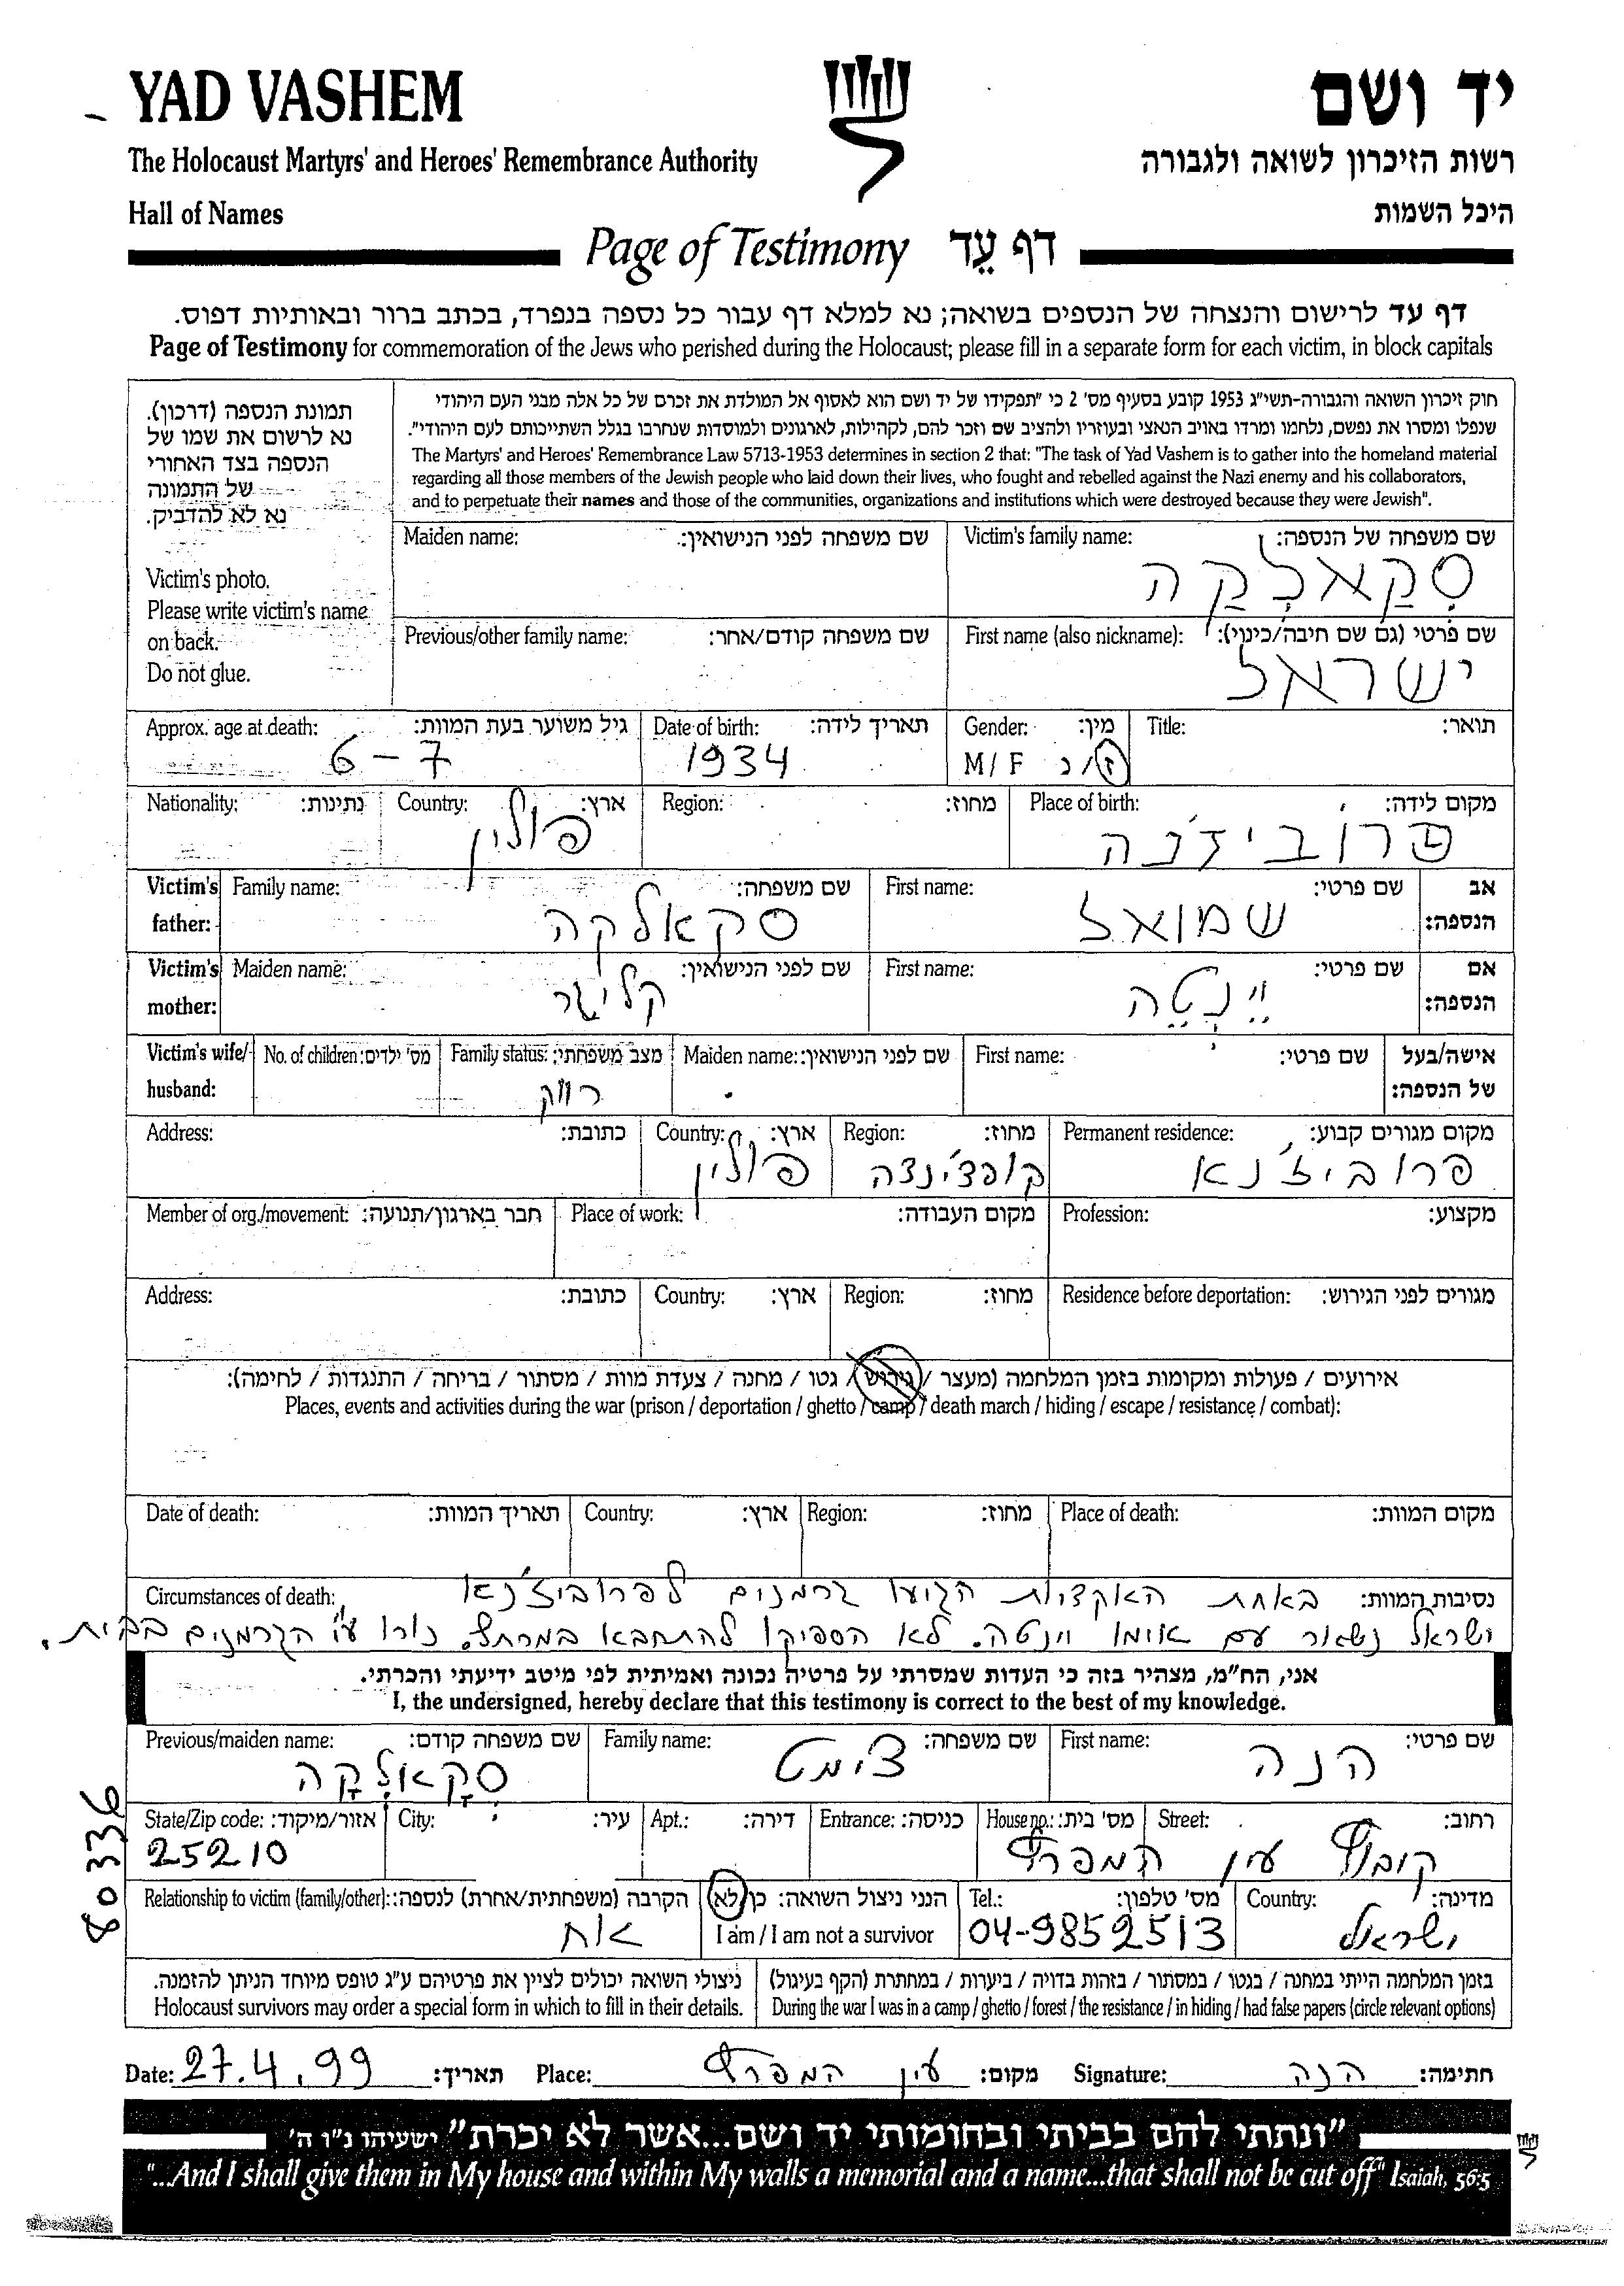 YAD VASHEM
יד ושם
The Holocaust Martyrs' and Heroes' Remembrance Authority
רשות הזיכרון לשואה ולגבורה
Hall of Names
היכל השמות
Page of Testimony דף עֵד
דף עד לרישום והנצחה של הנספים בשואה; נא למלא דף עבור כל נספה בנפרד, בכתב ברור ובאותיות דפוס.
Page of Testimony for commemoration of the Jews who perished during the Holocaust; please fill in a separate form for each victim, in block capitals
תמונת הנספה (דרכון).
נא לרשום את שמו של
הנספה בצד האחורי
של התמונה
נא לא להדביק.
Victim's photo.
Please write victim's name
on back.
Do not glue.
חוק זיכרון השואה והגבורה-תשי״ג 1953 קובע בסעיף מס' 2 כי ״תפקידו של יד ושם הוא לאסוף אל המולדת את זכרם של כל אלה מבני העם היהודי
שנפלו ומסרו את נפשם, נלחמו ומרדו באויב הנאצי ובעוזריו ולהציב שם וזכר להם, לקהילות, לארגונים ולמוסדות שנחרבו בגלל השתייכותם לעם היהודי״.
The Martyrs' and Heroes' Remembrance Law 5713-1953 determines in section 2 that: "The task of Yad Vashem is to gather into the homeland material
regarding all those members of the Jewish people who laid down their lives, who fought and rebelled against the Nazi enemy and his collaborators,
and to perpetuate their names and those of the communities, organizations and institutions which were destroyed because they were Jewish".
Victim's family name: שם משפחה של הנספה:
סְקַאלְקַה
Maiden name: שם משפחה לפני הנישואין:
First name (also nickname): שם פרטי (גם שם חיבה/כינוי):
ישראל
Previous/other family name: שם משפחה קודם/אחר:
Title: תואר:
Gender: מין:
M / F ז/נ
Date of birth: תאריך לידה:
1934
Approx. age at death: גיל משוער בעת המוות:
6 – 7
Place of birth: מקום לידה:
פרובידז'נה
Region: מחוז:
Country: ארץ:
פולין
Nationality: נתינות:
Victim's father: אב הנספה:
First name: שם פרטי:
שמואל
Family name: שם משפחה:
סקאלקה
Victim's mother: אם הנספה:
First name: שם פרטי:
יֵינְטֵה
Maiden name: שם לפני הנישואין:
קליגר
Victim's wife/ husband: אישה/בעל של הנספה:
First name: שם פרטי:
Maiden name: שם לפני הנישואין:
Family status: מצב משפחתי:
רווק
No. of children: מס' ילדים:
Permanent residence: מקום מגורים קבוע:
פרוביז'נא
Region: מחוז:
קופצ'ינצה
Country: ארץ:
פולין
Address: כתובת:
Profession: מקצוע:
Place of work: מקום העבודה:
Member of org./movement: חבר בארגון/תנועה:
Residence before deportation: מגורים לפני הגירוש:
Region: מחוז:
Country: ארץ:
Address: כתובת:
אירועים / פעולות ומקומות בזמן המלחמה (מעצר / גירוש / גטו / מחנה / צעדת מוות / מסתור / בריחה / התנגדות / לחימה):
Places, events and activities during the war (prison / deportation / ghetto / camp / death march / hiding / escape / resistance / combat):
Place of death: מקום המוות:
Region: מחוז:
Country: ארץ:
Date of death: תאריך המוות:
Circumstances of death: נסיבות המוות:
באחת האקציות הגיעו גרמנים לפרוביז'נא
ישראל נשאר עם אימו יינטה. לא הספיקו להתחבא במרתף. נורו ע״י הגרמנים בבית.
אני, הח״מ, מצהיר בזה כי העדות שמסרתי על פרטיה נכונה ואמיתית לפי מיטב ידיעתי והכרתי.
I, the undersigned, hereby declare that this testimony is correct to the best of my knowledge.
First name: שם פרטי:
הנה
Family name: שם משפחה:
צימט
Previous/maiden name: שם משפחה קודם:
סְקָאלְקָה
Street: רחוב:
House no.: מס' בית:
קיבוץ עין המפרץ
Entrance: כניסה:
Apt.: דירה:
City: עיר:
State/Zip code: אזור/מיקוד:
25210
80336
Country: מדינה:
ישראל
Tel.: מס' טלפון:
04-9852513
הנני ניצול השואה: כן/לא
I am / I am not a survivor
Relationship to victim (family/other): הקרבה (משפחתית/אחרת) לנספה:
אח
בזמן המלחמה הייתי במחנה / בגטו / במסתור / בזהות בדויה / ביערות / במחתרת (הקף בעיגול)
During the war I was in a camp / ghetto / forest / the resistance / in hiding / had false papers (circle relevant options)
ניצולי השואה יכולים לציין את פרטיהם ע״ג טופס מיוחד הניתן להזמנה.
Holocaust survivors may order a special form in which to fill in their details.
Date: 27.4.99 תאריך:
Place: עין המפרץ מקום:
Signature: הנה חתימה:
״ונתתי להם בביתי ובחומותי יד ושם...אשר לא יכרת״ ישעיהו נ״ו ה'
"...And I shall give them in My house and within My walls a memorial and a name...that shall not be cut off" Isaiah, 56:5